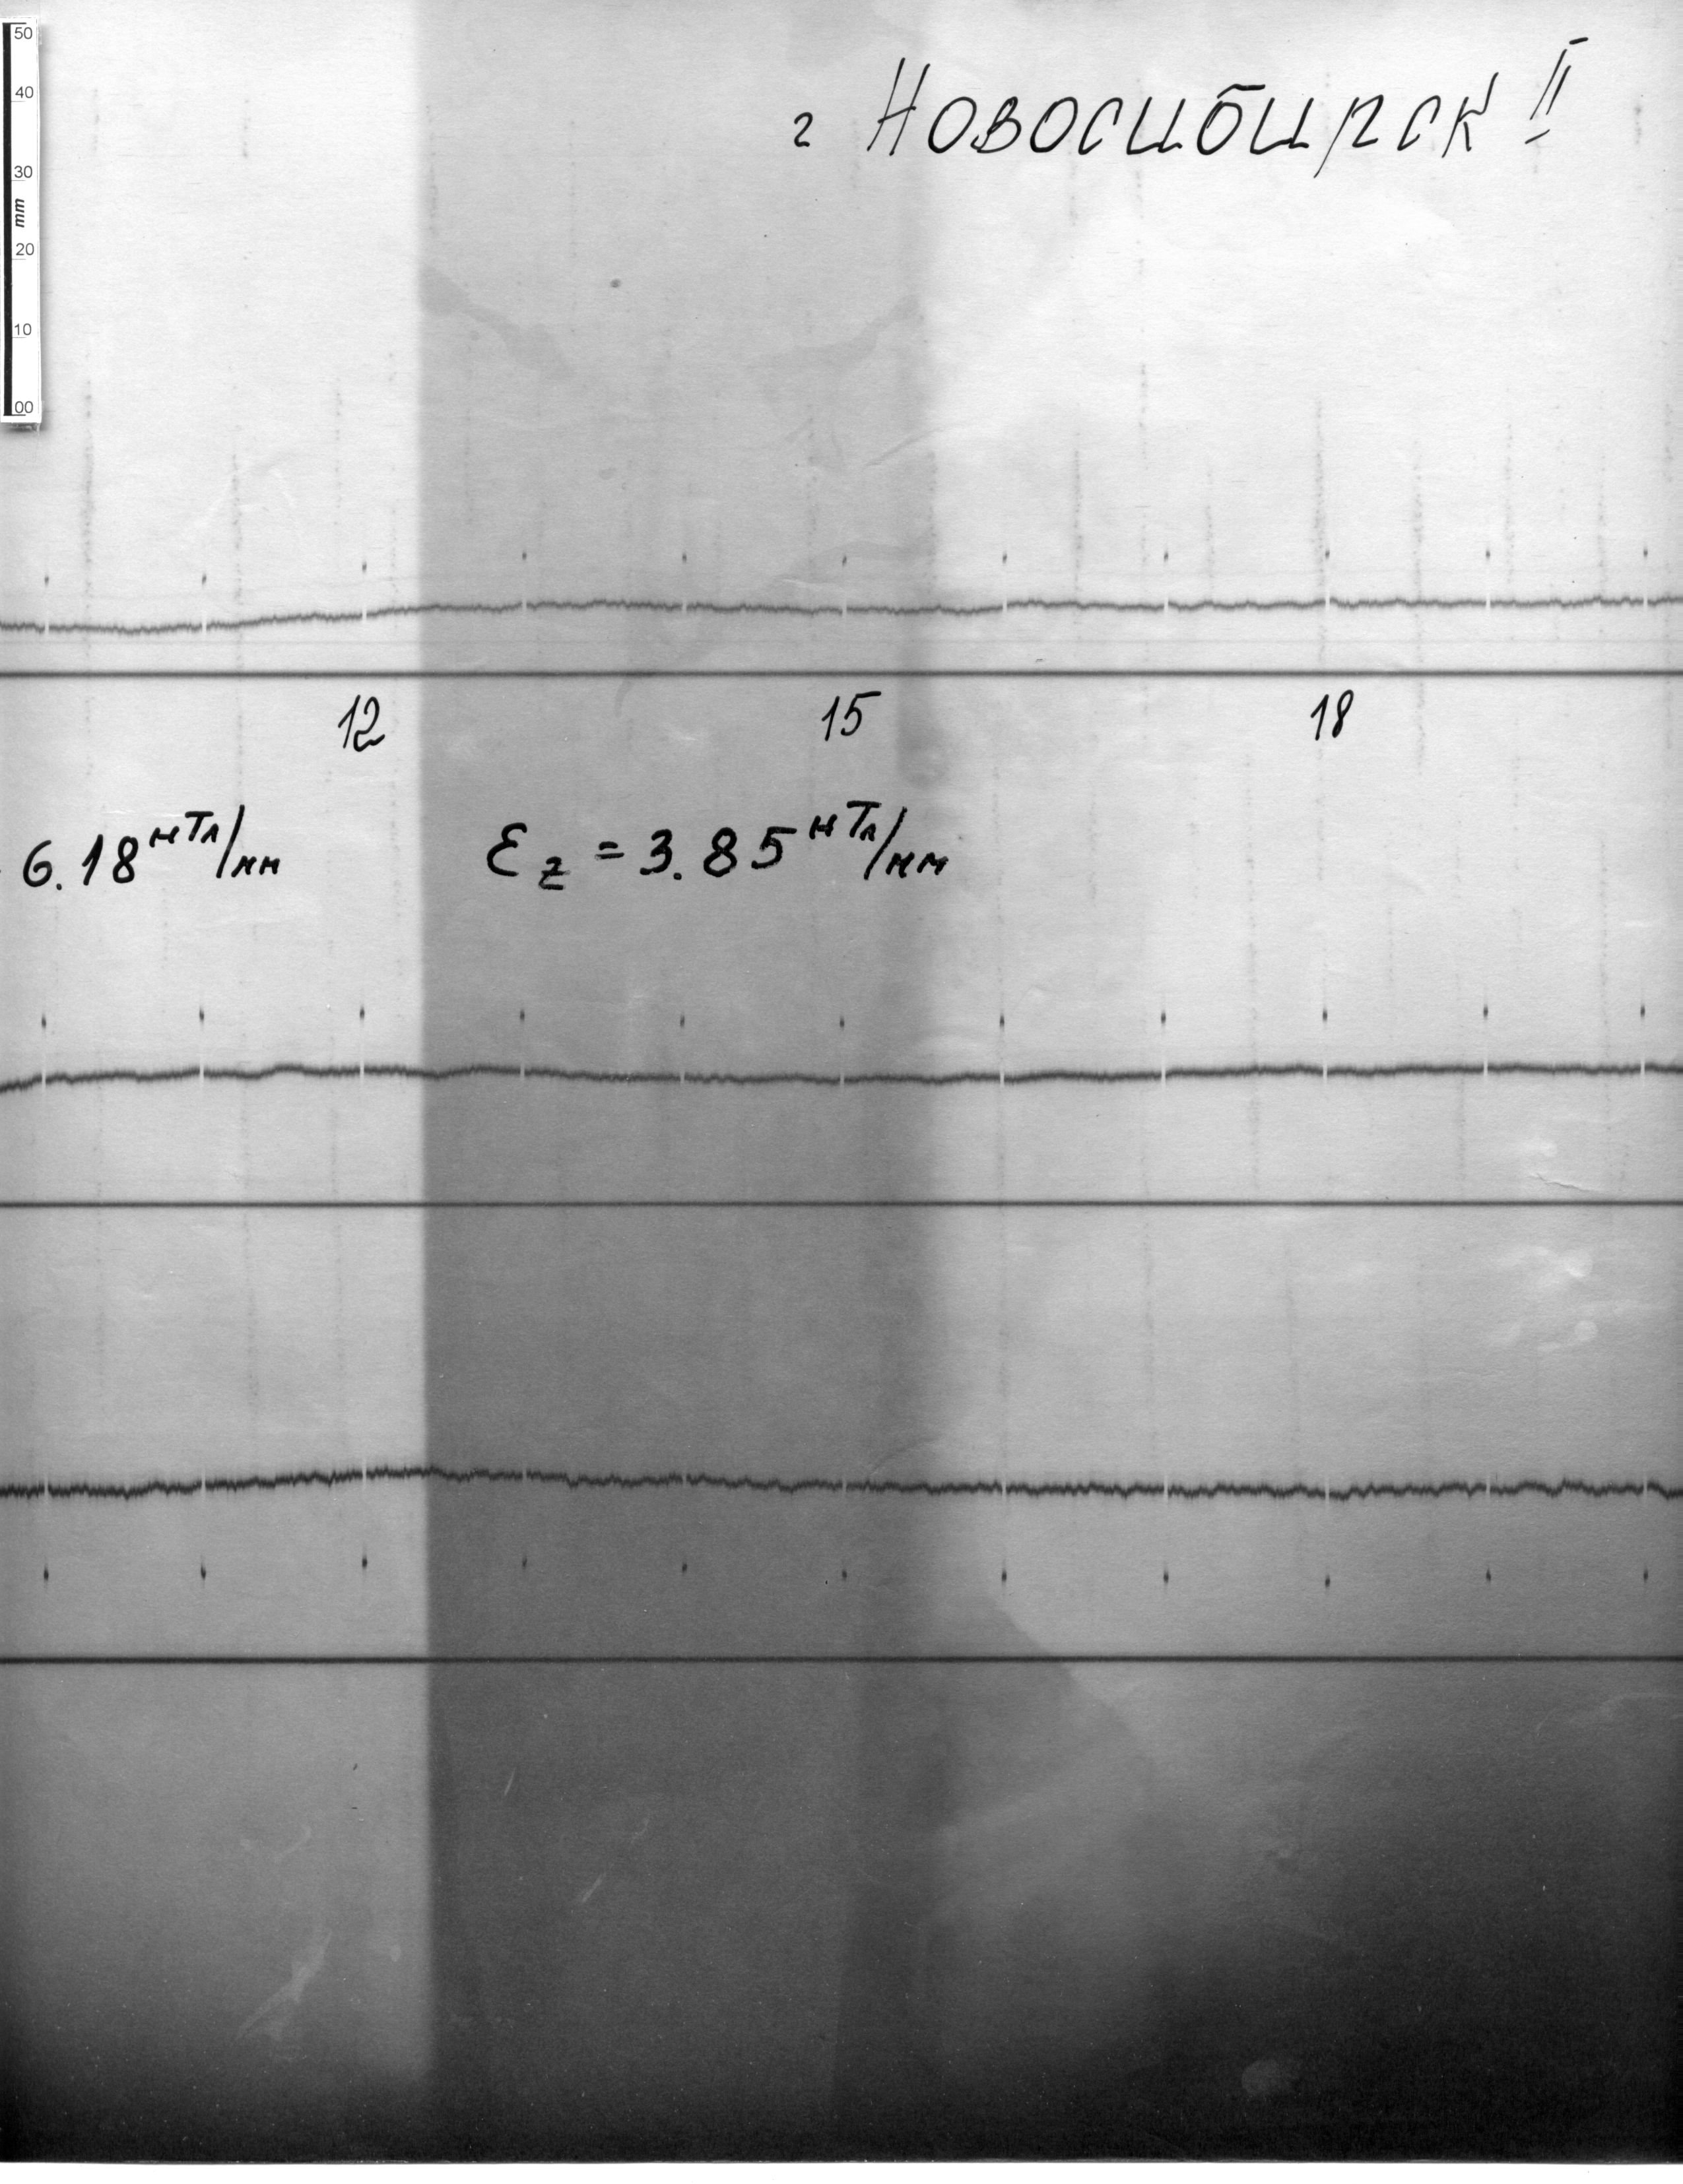 50
40
30
mm
20
10
00
г Новосибирск II
12 15 18
6.18 нТл/мм Ɛz = 3.85 нТл/мм